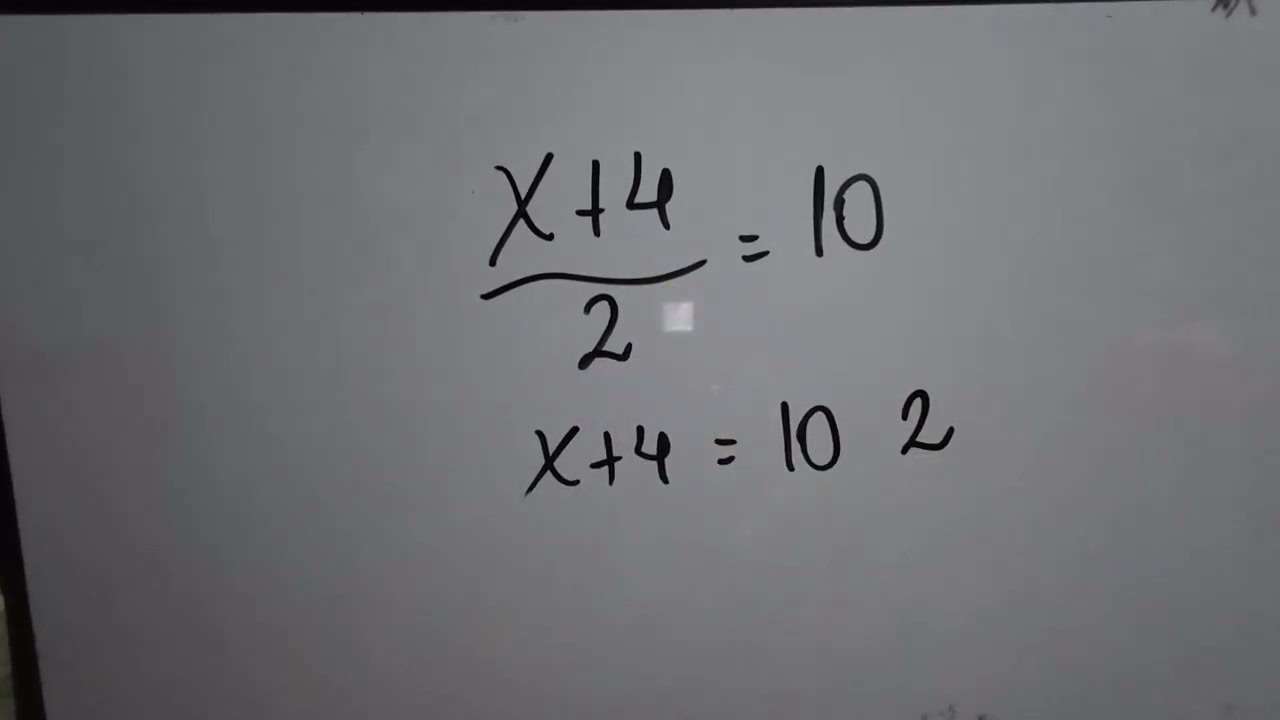 x+4
2
= 10
x+4 = 10 2